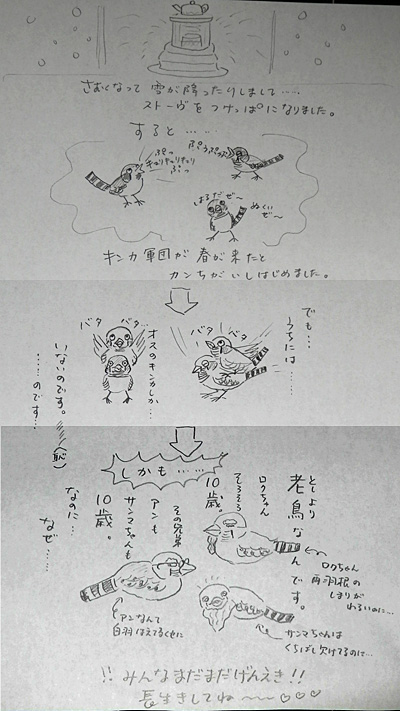 さむくなって 雪が降ったりしまして……
ストーヴを つけっぱ°になりました。
すると……
ぷっ
キュリキュリキュリ
ぷっ
ぷうぷっぷっ
はるだぜ〜
ぬくいぜ〜
キンカ軍団が 春が来たと
カンちがいしはじめました。
でも…
うちには……
バタ バタ
バタ バタ…
オスのキンカしか…
いないのです。
(恥)
……のです…
しかも……
としより
老鳥なんです。
ロクちゃん
そろそろ
10歳。
その兄弟
アンも
サンマちゃんも
10歳。
なのに…
なぜ……
ロクちゃん
両羽根の
しまりが
わるいのに…
サンマちゃんは
くちばし欠けてるのに…
アンなんて
白羽はえてるくせに
!! みんなまだまだげんえき!!
長生きしてね〜〜♡♡♡